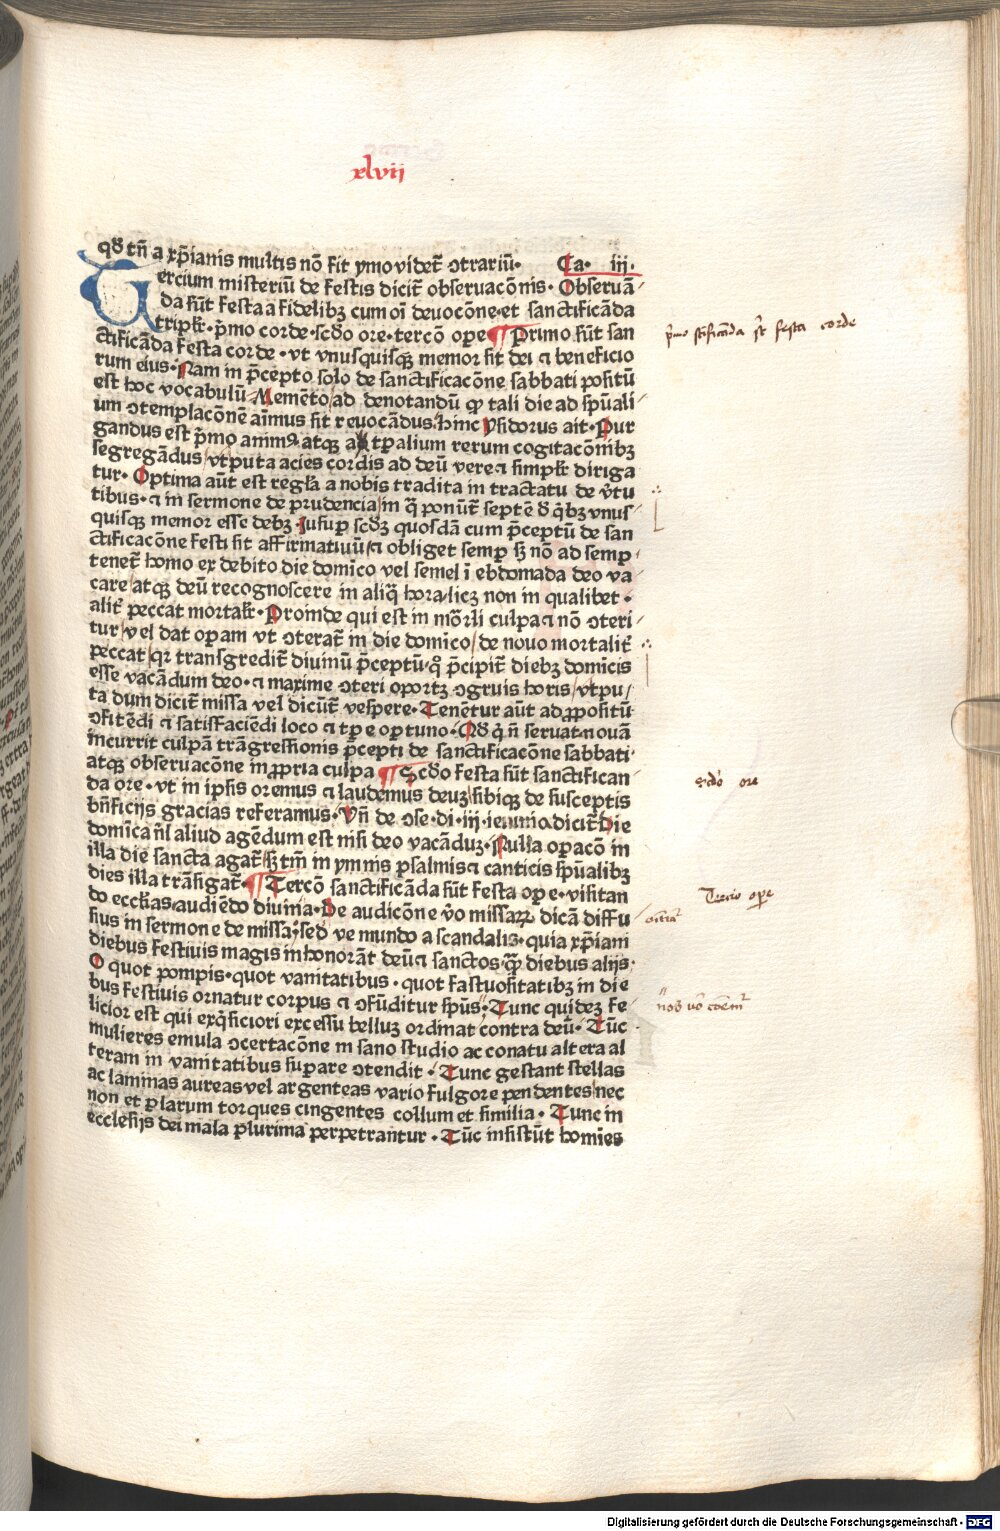 xlvii
qđ tñ a xp̄ianis multis nō fit ymo videt̄ ↄtrariū· Ca· iij·
Tercium misteriū de festis dicit̄ observacōnis· Observā
da sūt festa a fidelibꝫ cum oī devocōne· et sanctificāda
triplr̄· p̄mo corde· scđo ore· tercō ope ¶ Primo sūt san
ctificāda festa corde · vt vnusquisqꝫ memor sit dei ⁊ beneficio
rum eius· Nam in p̄cepto solo de sanctificacōne sabbati positū
est hoc vocabulū Memēto/ad denotandū ꝙ tali die ad sp̄uali
um ↄtemplacōnē aīmus sit revocādus· hinc Ysidorus ait· Pur
gandus est p̄mo animꝰ atqꝫ a tp̄alium rerum cogitacōnibꝫ
segregādus/vtputa acies cordis ad deū vere ⁊ simplr̄ diriga
tur· Optima aūt est regl̄a a nobis tradita in tractatu de v̄tu
tibus· ⁊ in sermone de prudencia/in q̄ ponūt̄ septē đ q̄bꝫ vnus
quisqꝫ memor esse debꝫ · Insup̄ scđꝫ quosdā cum p̄ceptū de san
ctificacōne festi sit affirmativū/⁊ obliget semp̄ sꝫ nō ad semp̄
tenet̄ homo ex debito die domīco vel semel ī ebdomada deo va
care/atqꝫ deū recognoscere in aliq̄ hora/licꝫ non in qualibet ·
alit̄ peccat mortalr̄· Proinde qui est in mōrli culpa ⁊ nō ↄteri
tur/vel dat op̄am vt ↄterat̄ in die domīco/de novo mortalit̄
peccat/qꝛ transgredit̄ divinū p̄ceptū/qđ p̄cipit̄ diebꝫ domīcis
esse vacādum deo· ⁊ maxime ↄteri oportꝫ ↄgruis horis/vtpu
ta dum dicit̄ missa vel dicūt̄ vespere· Tenētur aūt ad ꝓpositū
ↄfitēdi ⁊ satisfaciēdi loco ⁊ tp̄e oportuno· Qđ q̇ ñ servat· novā
incurrit culpā trāgressionis p̄cepti de sanctificacōne sabbati·
atqꝫ observacōne in ꝓpria culpa ¶ Scđo festa sūt sanctifican
da ore· vt in ipsis oremus ⁊ laudemus deuꝫ/sibiqꝫ de susceptis
bn̄ficijs gracias referamus· Vn̄ de ↄse· di· iij· ieiunia dicit̄ Die
domīca nl̄ aliud agēdum est nisi deo vacāduꝫ· Nulla op̄acō in
illa die sancta agat̄/sꝫ tm̄ in ymnis psalmis ⁊ canticis sp̄ualibꝫ
dies illa trāsigat̄· ¶ Tercō sanctificāda sūt festa ope · visitan
do eccl̄ias/audiēdo divina· De audicōne v̄o missaꝝ dicā diffu
sius in sermone de missa/sed ve mundo a scandalis· quia xp̄iani
diebus festivis magis inhonorāt deū ⁊ sanctos· qꝫ̄ diebus alijs·
O quot pompis· quot vanitatibus · quot fastuositatibꝫ in die
bus festivis ornatur corpus ⁊ ↄfūditur sp̄us· Tunc quideꝫ fe
licior est qui exq̄siciori excessu belluꝫ ordinat contra deū· Tūc
mulieres emula ↄcertacōne in sano studio ac conatu altera al
teram in vanitatibus sup̄are ↄtendit · Tunc gestant stellas
ac laminas aureas vel argenteas vario fulgore pendentes/nec
non et p̄larum torques cingentes collum et similia · Tunc in
ecclesijs dei mala plurima perpetrantur · Tūc insistūt homīes
p̄mo sctificāda sūt festa corde
scđo ore
Tercio ope